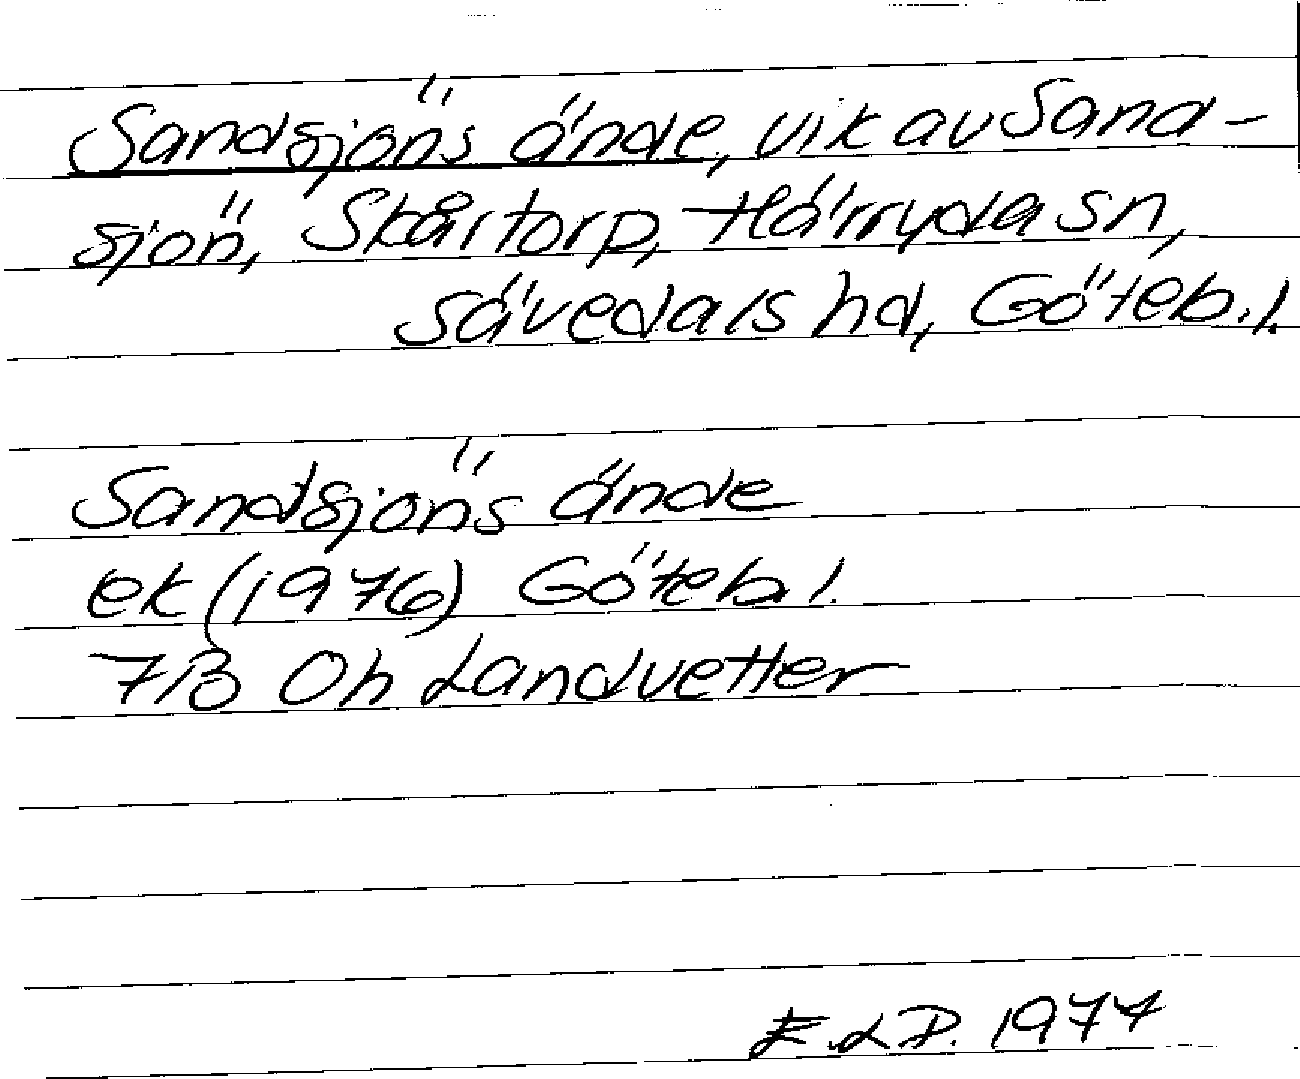 Sandsjöns ände, vik av Sand-
sjön, Skårtorp, Härryda sn,
sävedals hd, Göteb.l.
Sandsjöns ände
ek (1976) Göteb.l.
7B Oh Landvetter
E.L.D. 1977